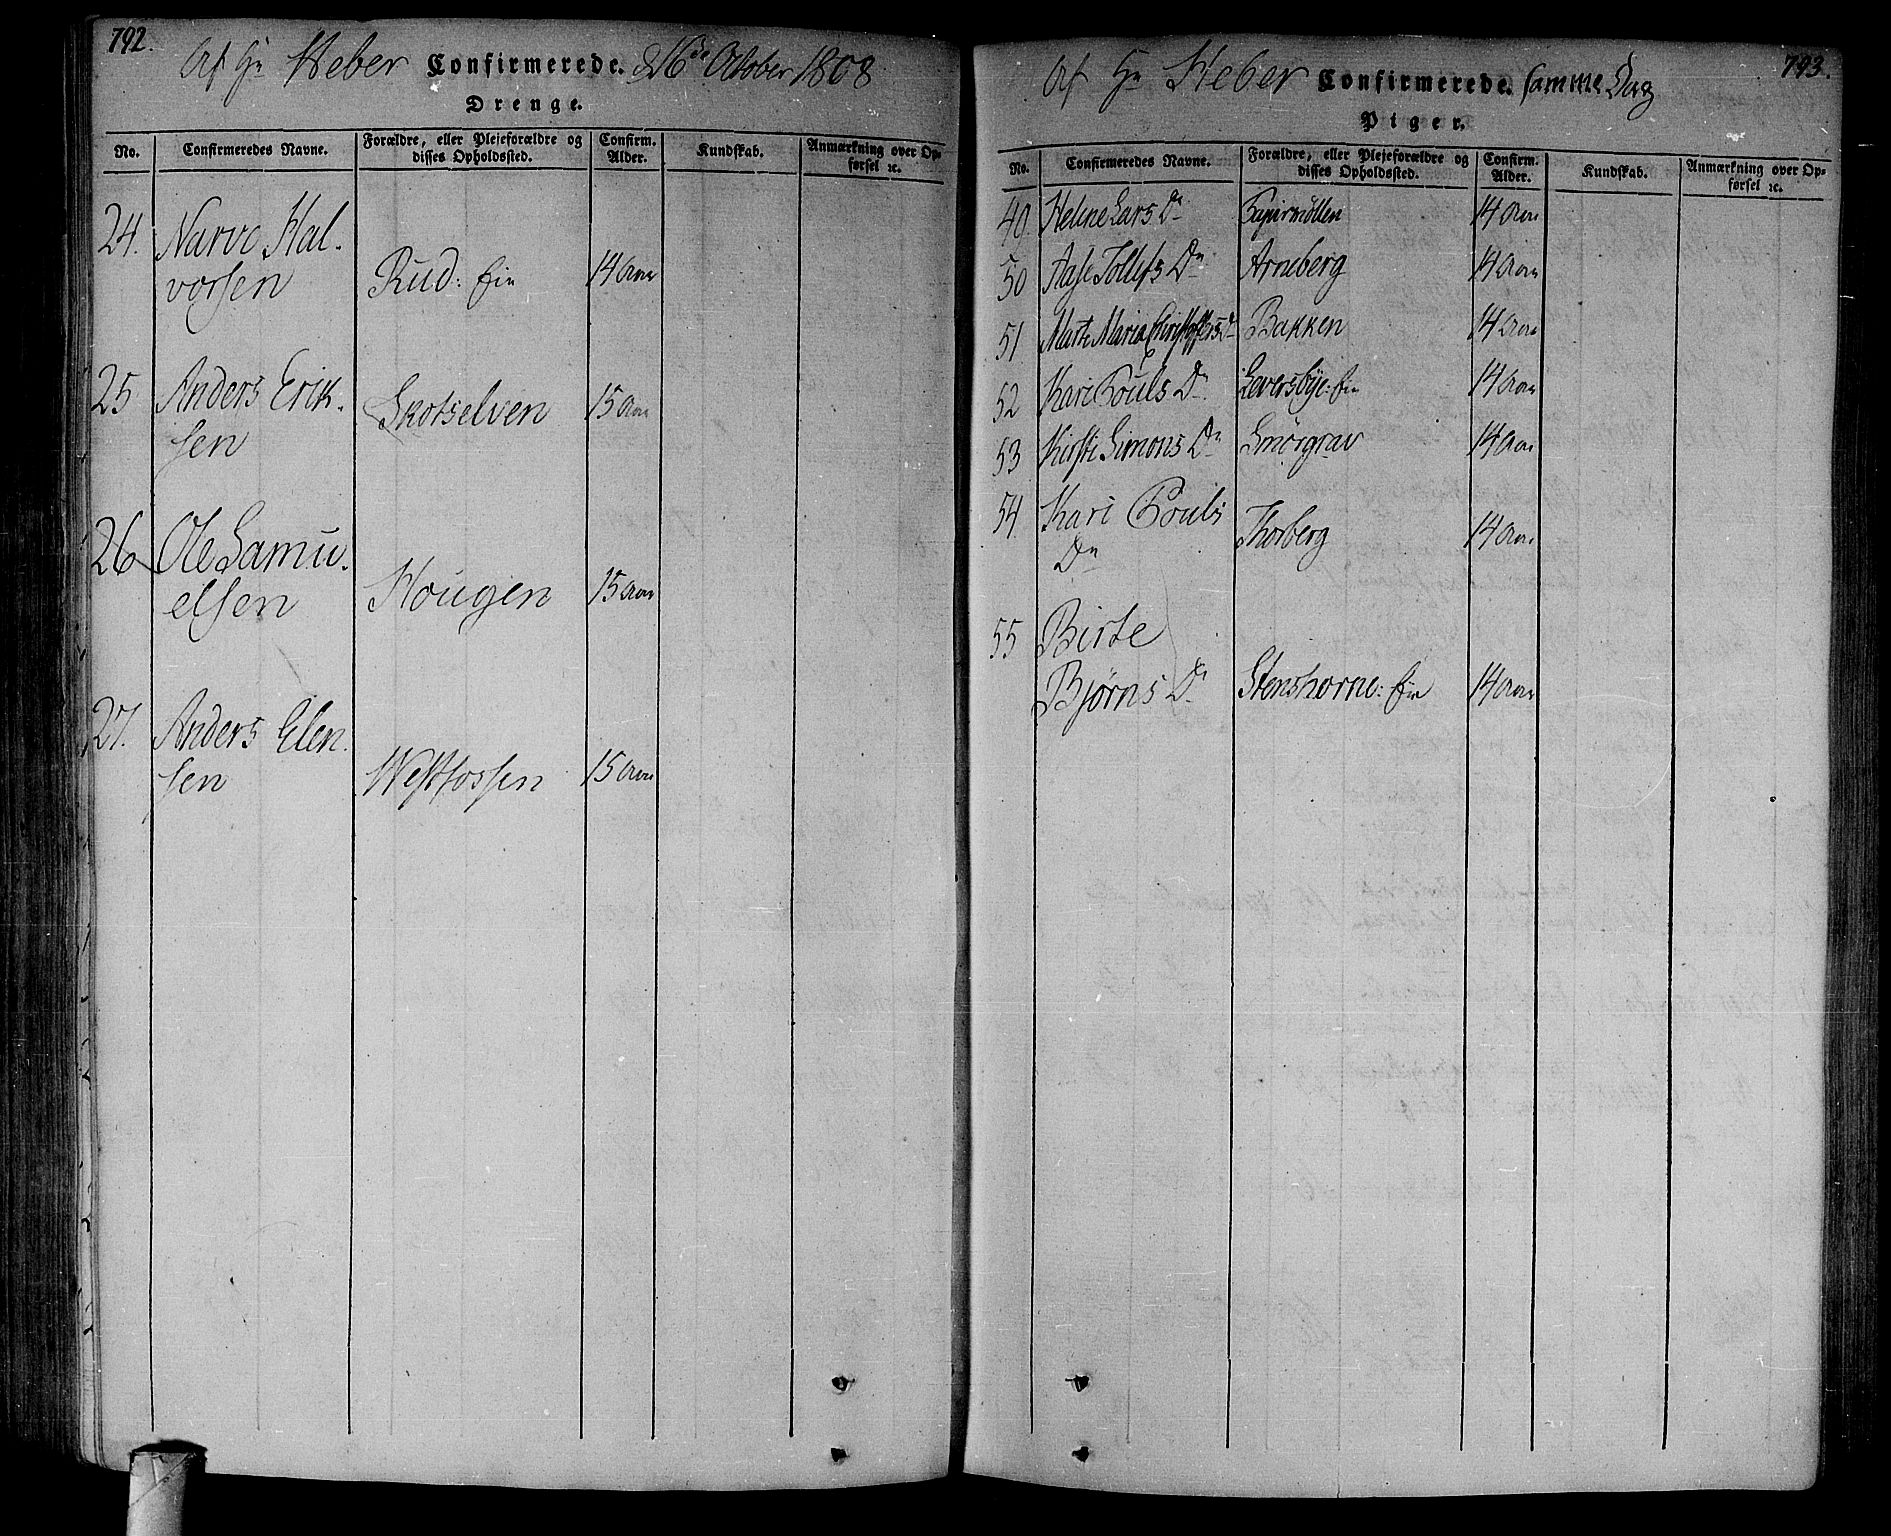 792.
Af Hr Heber Confirmerede. d 16de October 1808
Drenge.
No. Confirmeredes Navne. Forældre, eller Plejeforældre og disses Opholdssted. Confirm. Alder. Kundskab. Anmærkning over Opførsel ꝛc.
24. Narve Hal-
vorsen Rud: ein 14 Aar
25 Anders Erik-
sen Skotselven 15 Aar
26 Ole Samu-
elsen Hougen 15 Aar
27. Anders Elen-
sen Westfossen 15 Aar
793.
Af Hr Heber Confirmerede. samme Dag
Piger.
No. Confirmeredes Navne. Forældre, eller Plejeforældre og disses Opholdssted. Confirm. Alder. Kundskab. Anmærkning over Opførsel ꝛc.
49 Helene Lars Dr Papirmøllen 14 Aar
50 Aase Tollefs Dr Arneberg 14 Aar
51 Marte Maria Christoffers Dr Bakken 14 Aar
52 Kari Pouls Dr Leversbye: ein 14 Aar
53 Kirsti Simons Dr Smørgrav 14 Aar
54 Kari Pouls
Dr Thorberg 14 Aar
55 Birte
Bjørns Dr Stenshorne: ein 14 Aar